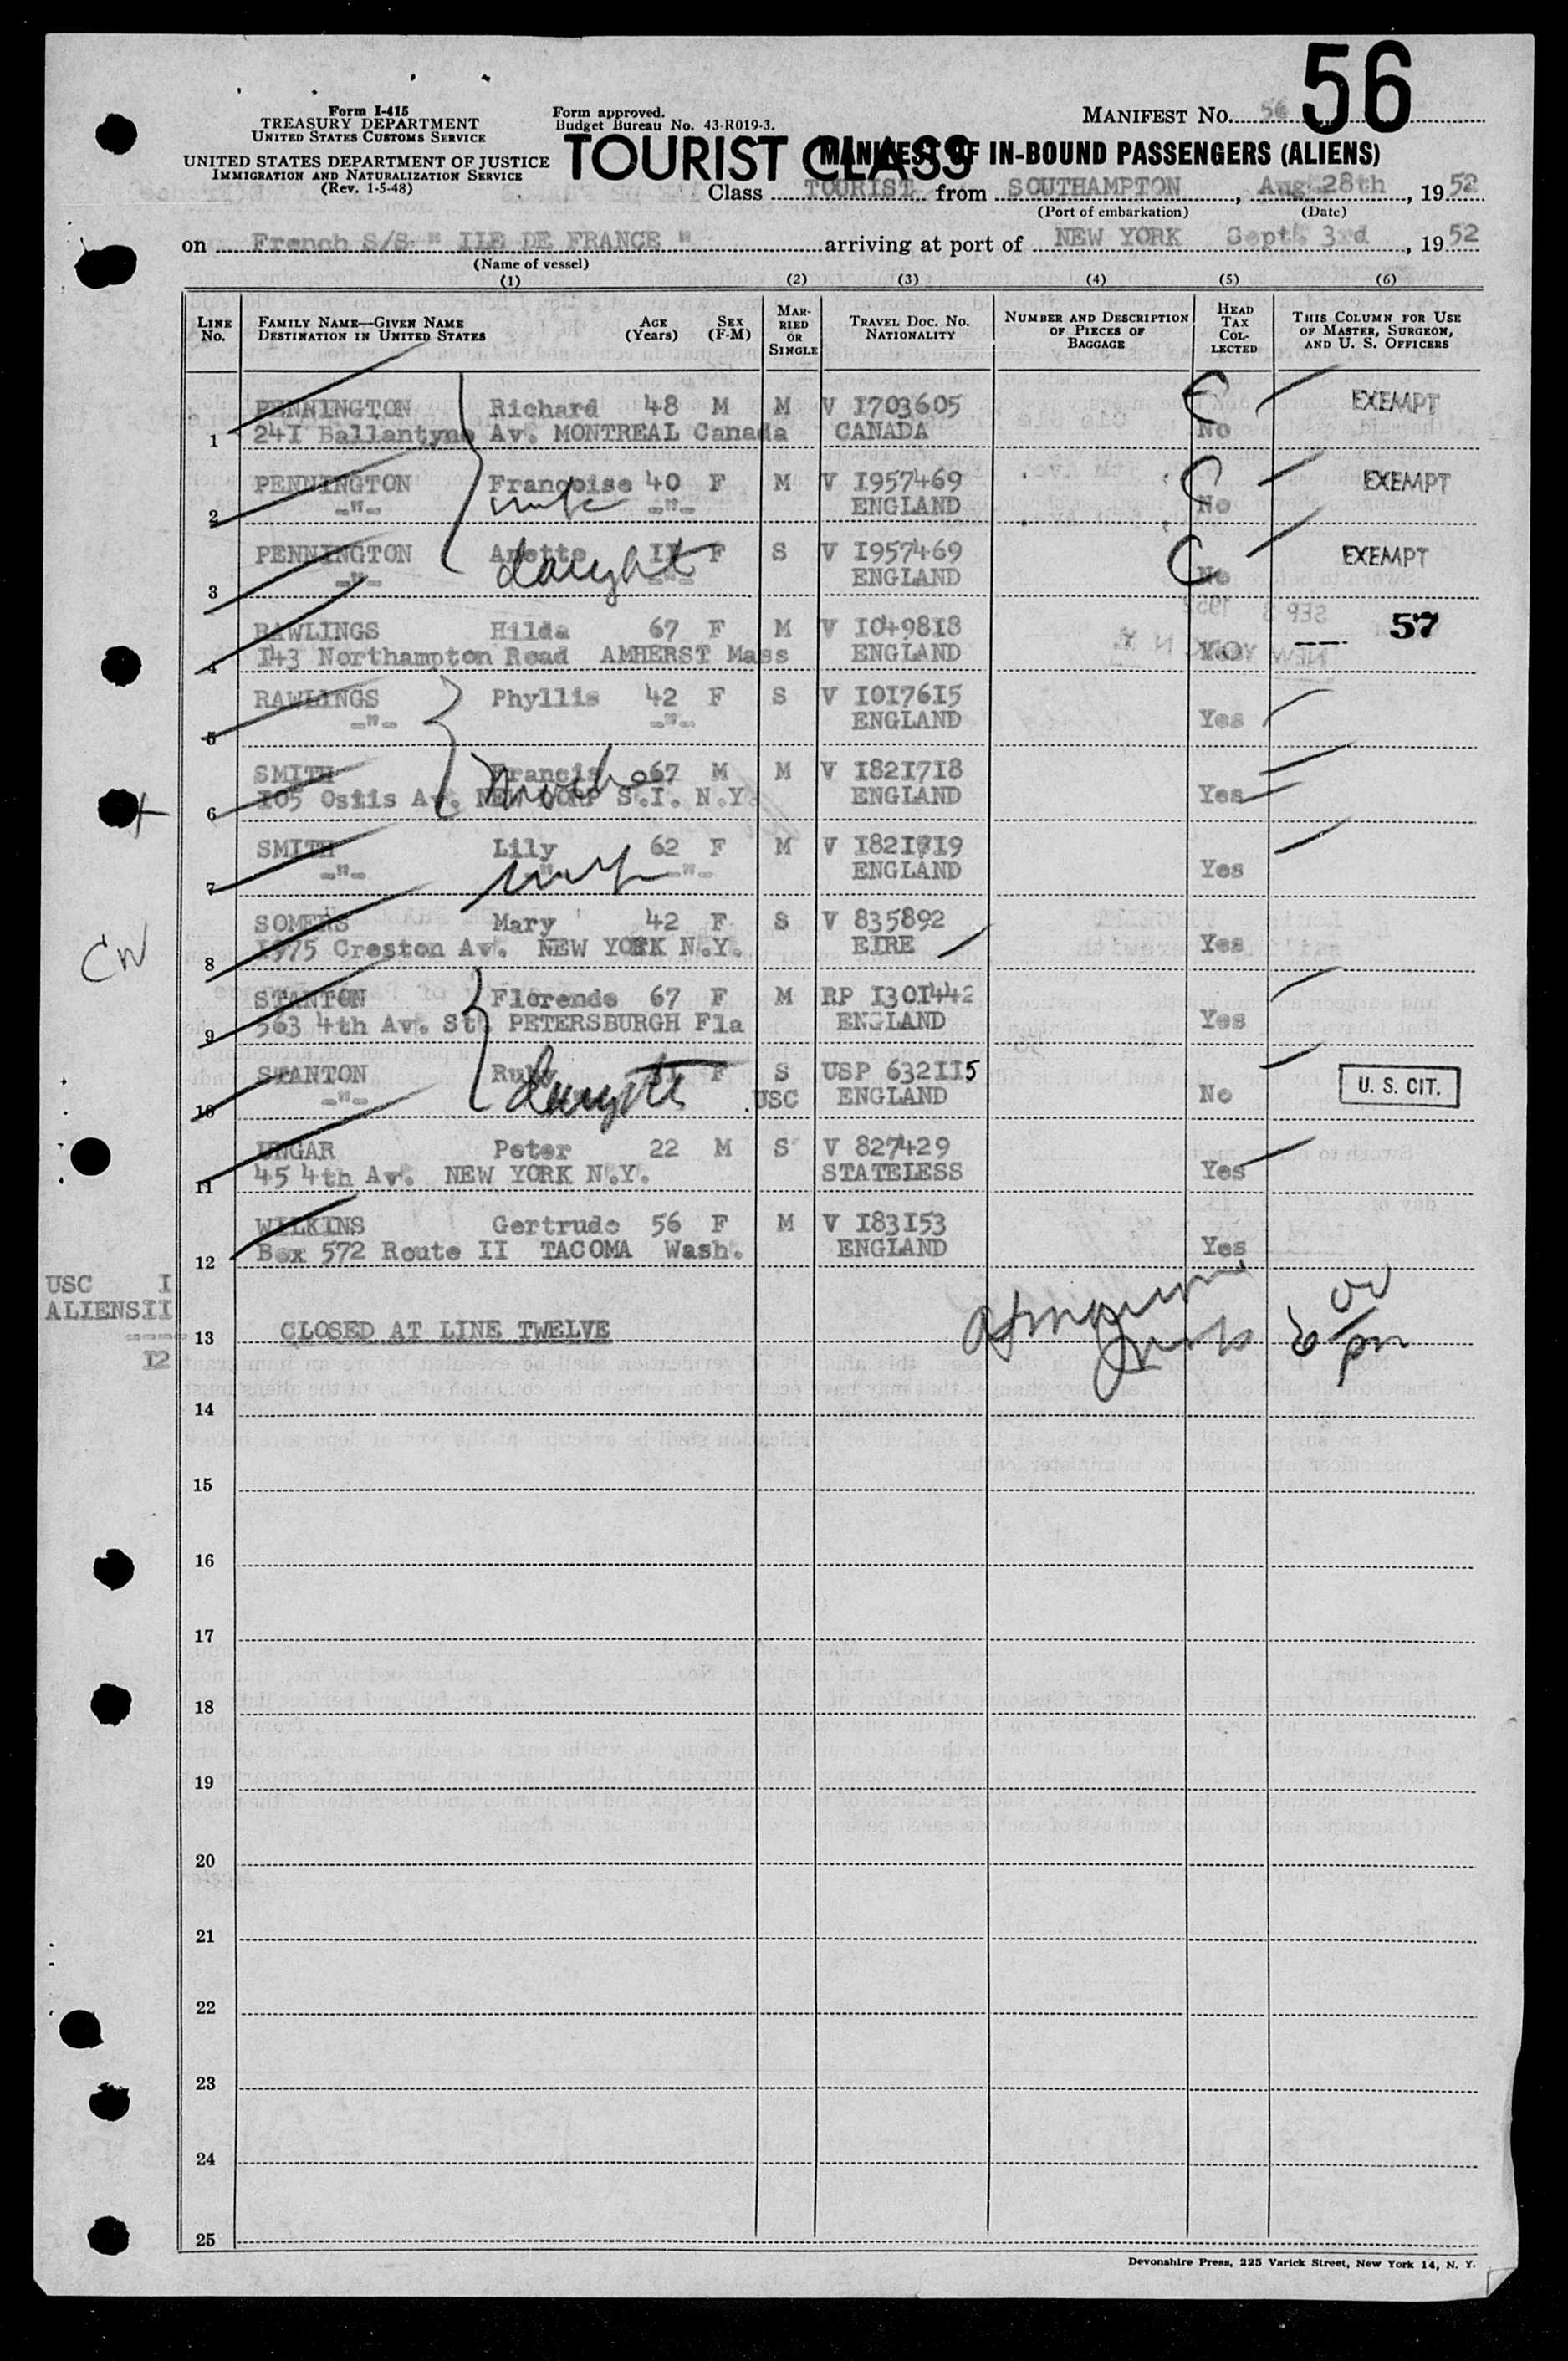 56
Form I-415
TREASURY DEPARTMENT
UNITED STATES CUSTOMS SERVICE
UNITED STATES DEPARTMENT OF JUSTICE
IMMIGRATION AND NATURALIZATION SERVICE
(Rev. 1-5-48)
Form approved.
Budget Bureau No. 43-R019-3.
MANIFEST No. 56
TOURIST CLASS
MANIFEST OF IN-BOUND PASSENGERS (ALIENS)
Class TOURIST from SOUTHAMPTON, Aug. 28th, 1952
(Port of embarkation) (Date)
on French S/S " ILE DE FRANCE " arriving at port of NEW YORK Sept. 3rd, 1952
(Name of vessel)
(1) (2) (3) (4) (5) (6)
LINE No. FAMILY NAME—GIVEN NAME DESTINATION IN UNITED STATES AGE (Years) SEX (F-M) MARRIED OR SINGLE TRAVEL DOC. NO. NATIONALITY NUMBER AND DESCRIPTION OF PIECES OF BAGGAGE HEAD TAX COLLECTED THIS COLUMN FOR USE OF MASTER, SURGEON, AND U. S. OFFICERS
PENNINGTON Richard 48 M M V 1703605 EXEMPT
1 241 Ballantyne Av. MONTREAL Canada CANADA No
PENNINGTON Françoise 40 F M V 1957469 EXEMPT
2 -"- wife -"- ENGLAND No
PENNINGTON Anette 11 F S V 1957469 EXEMPT
3 -"- daught -"- ENGLAND No
RAWLINGS Hilda 67 F M V 1049818 57
4 143 Northampton Road AMHERST Mass ENGLAND
RAWLINGS Phyllis 42 F S V 1017615
5 -"- -"- ENGLAND Yes
SMITH Francis 67 M M V 1821718
6 105 Ostis Av. NEW DORP S.I. N.Y. ENGLAND Yes
SMITH Lily 62 F M V 1821719
7 -"- wife -"- ENGLAND Yes
SOMERS Mary 42 F S V 835892
CW
8 1975 Creston Av. NEW YORK N.Y. EIRE Yes
STANTON Florende 67 F M RP 1301442
9 563 4th Av. St. PETERSBURGH Fla ENGLAND Yes
STANTON Ruby F S USP 632115 U. S. CIT.
10 -"- daughter USC ENGLAND No
UNGAR Peter 22 M S V 827429
11 45 4th Av. NEW YORK N.Y. STATELESS Yes
WILKINS Gertrude 56 F M V 183153
12 Box 572 Route II TACOMA Wash. ENGLAND Yes
USC I
ALIENS II
----
12
13 CLOSED AT LINE TWELVE
14
15
16
17
18
19
20
21
22
23
24
25
Devonshire Press, 225 Varick Street, New York 14, N. Y.